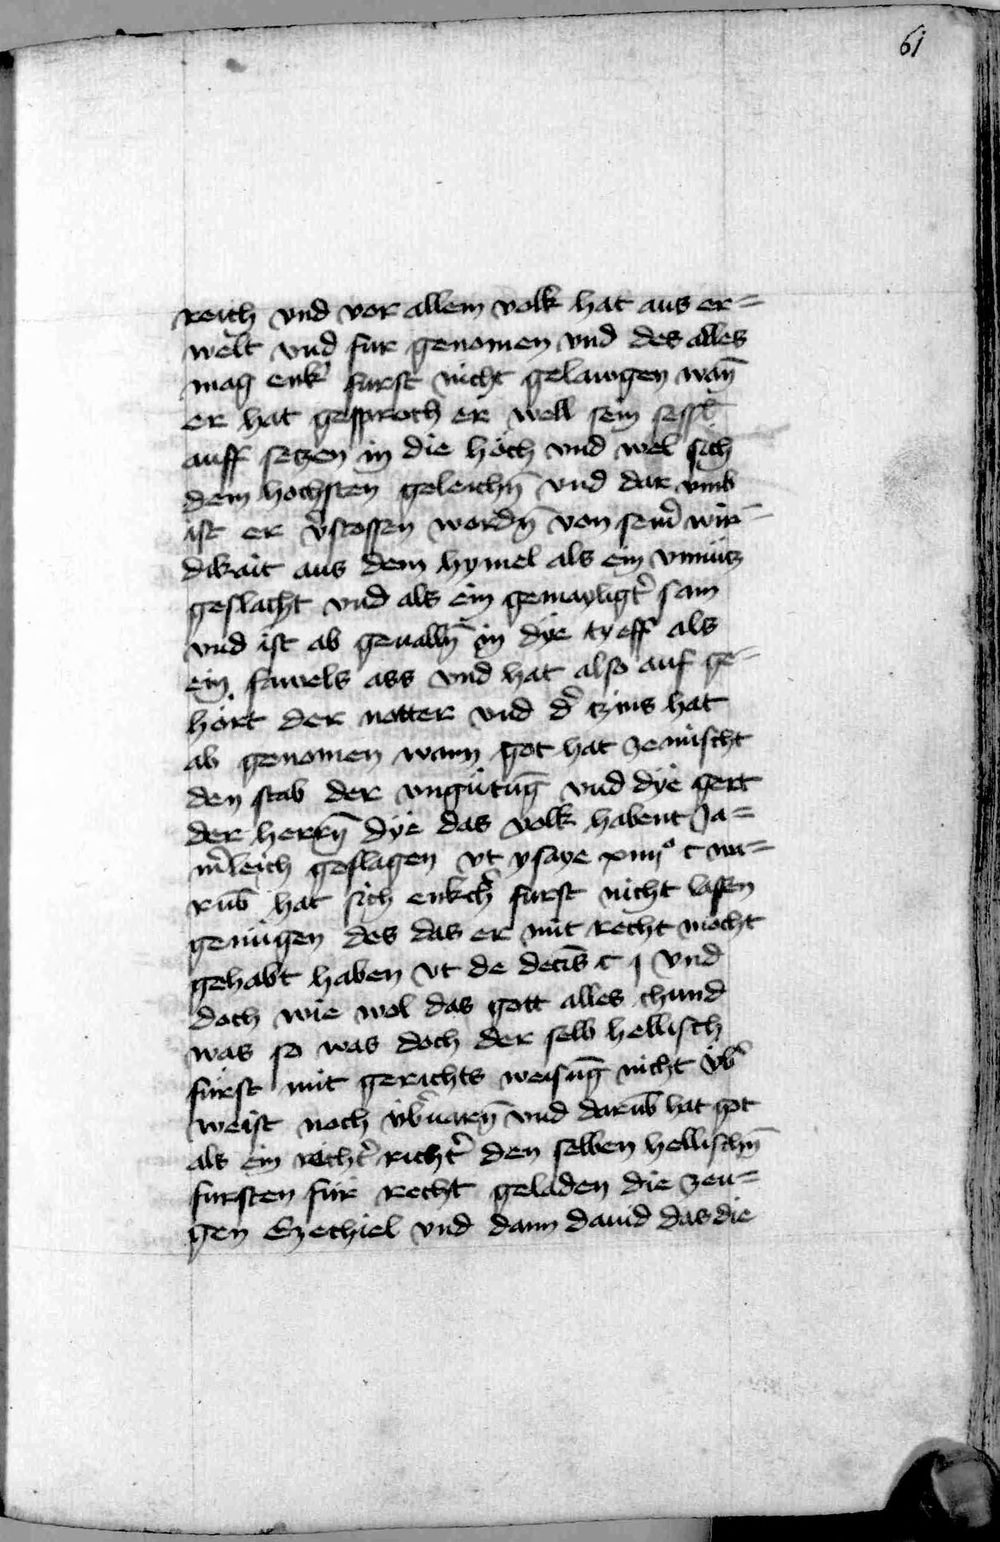 61
reich vnd vor allem volk hat aus er=
welt vnd fur genomen vnd des alles
mag enkˀ furst nicht gelawgen wan̄
er hat gesproch er well sein sessl̄
auff setzen in die höch vnd wel sich
dem hochsten geleichn̄ vnd dar vmb
ist er v̓stossen wordn̄ von sein̓ wir=
dikait aus dem hymel als ein vnnütz
geslacht vnd als ein gemayligt̓ sam
vnd ist ab geualln̄ in dye tyeff als
ein fawels ass vnd hat also auf ge=
hört der notter vnd d̓ tzins hat
ab genomen wann got hat zemischt
den stab der vngütnḡ vnd dye gert
der herrn̄ dye das volk habent Ja=
m̓leich geslagen vt ysaye xiiij° c wa=
rūb hat sich enkch̓ furst nicht lassen
genügen des das er mit recht mocht
gehabt haben vt de decīs c j vnd
doch wie wol das gott alles chund
was so was doch der selb hellisch
fürst mit gerichts weisūg nicht vb̓
weist noch vb̓uarn̄ vnd darūb hat got
als ein recht̓ richt̓ den selben hellischn̄
fursten für recht geladen die zeu=
gen Ezechiel vnd dann dauid das die